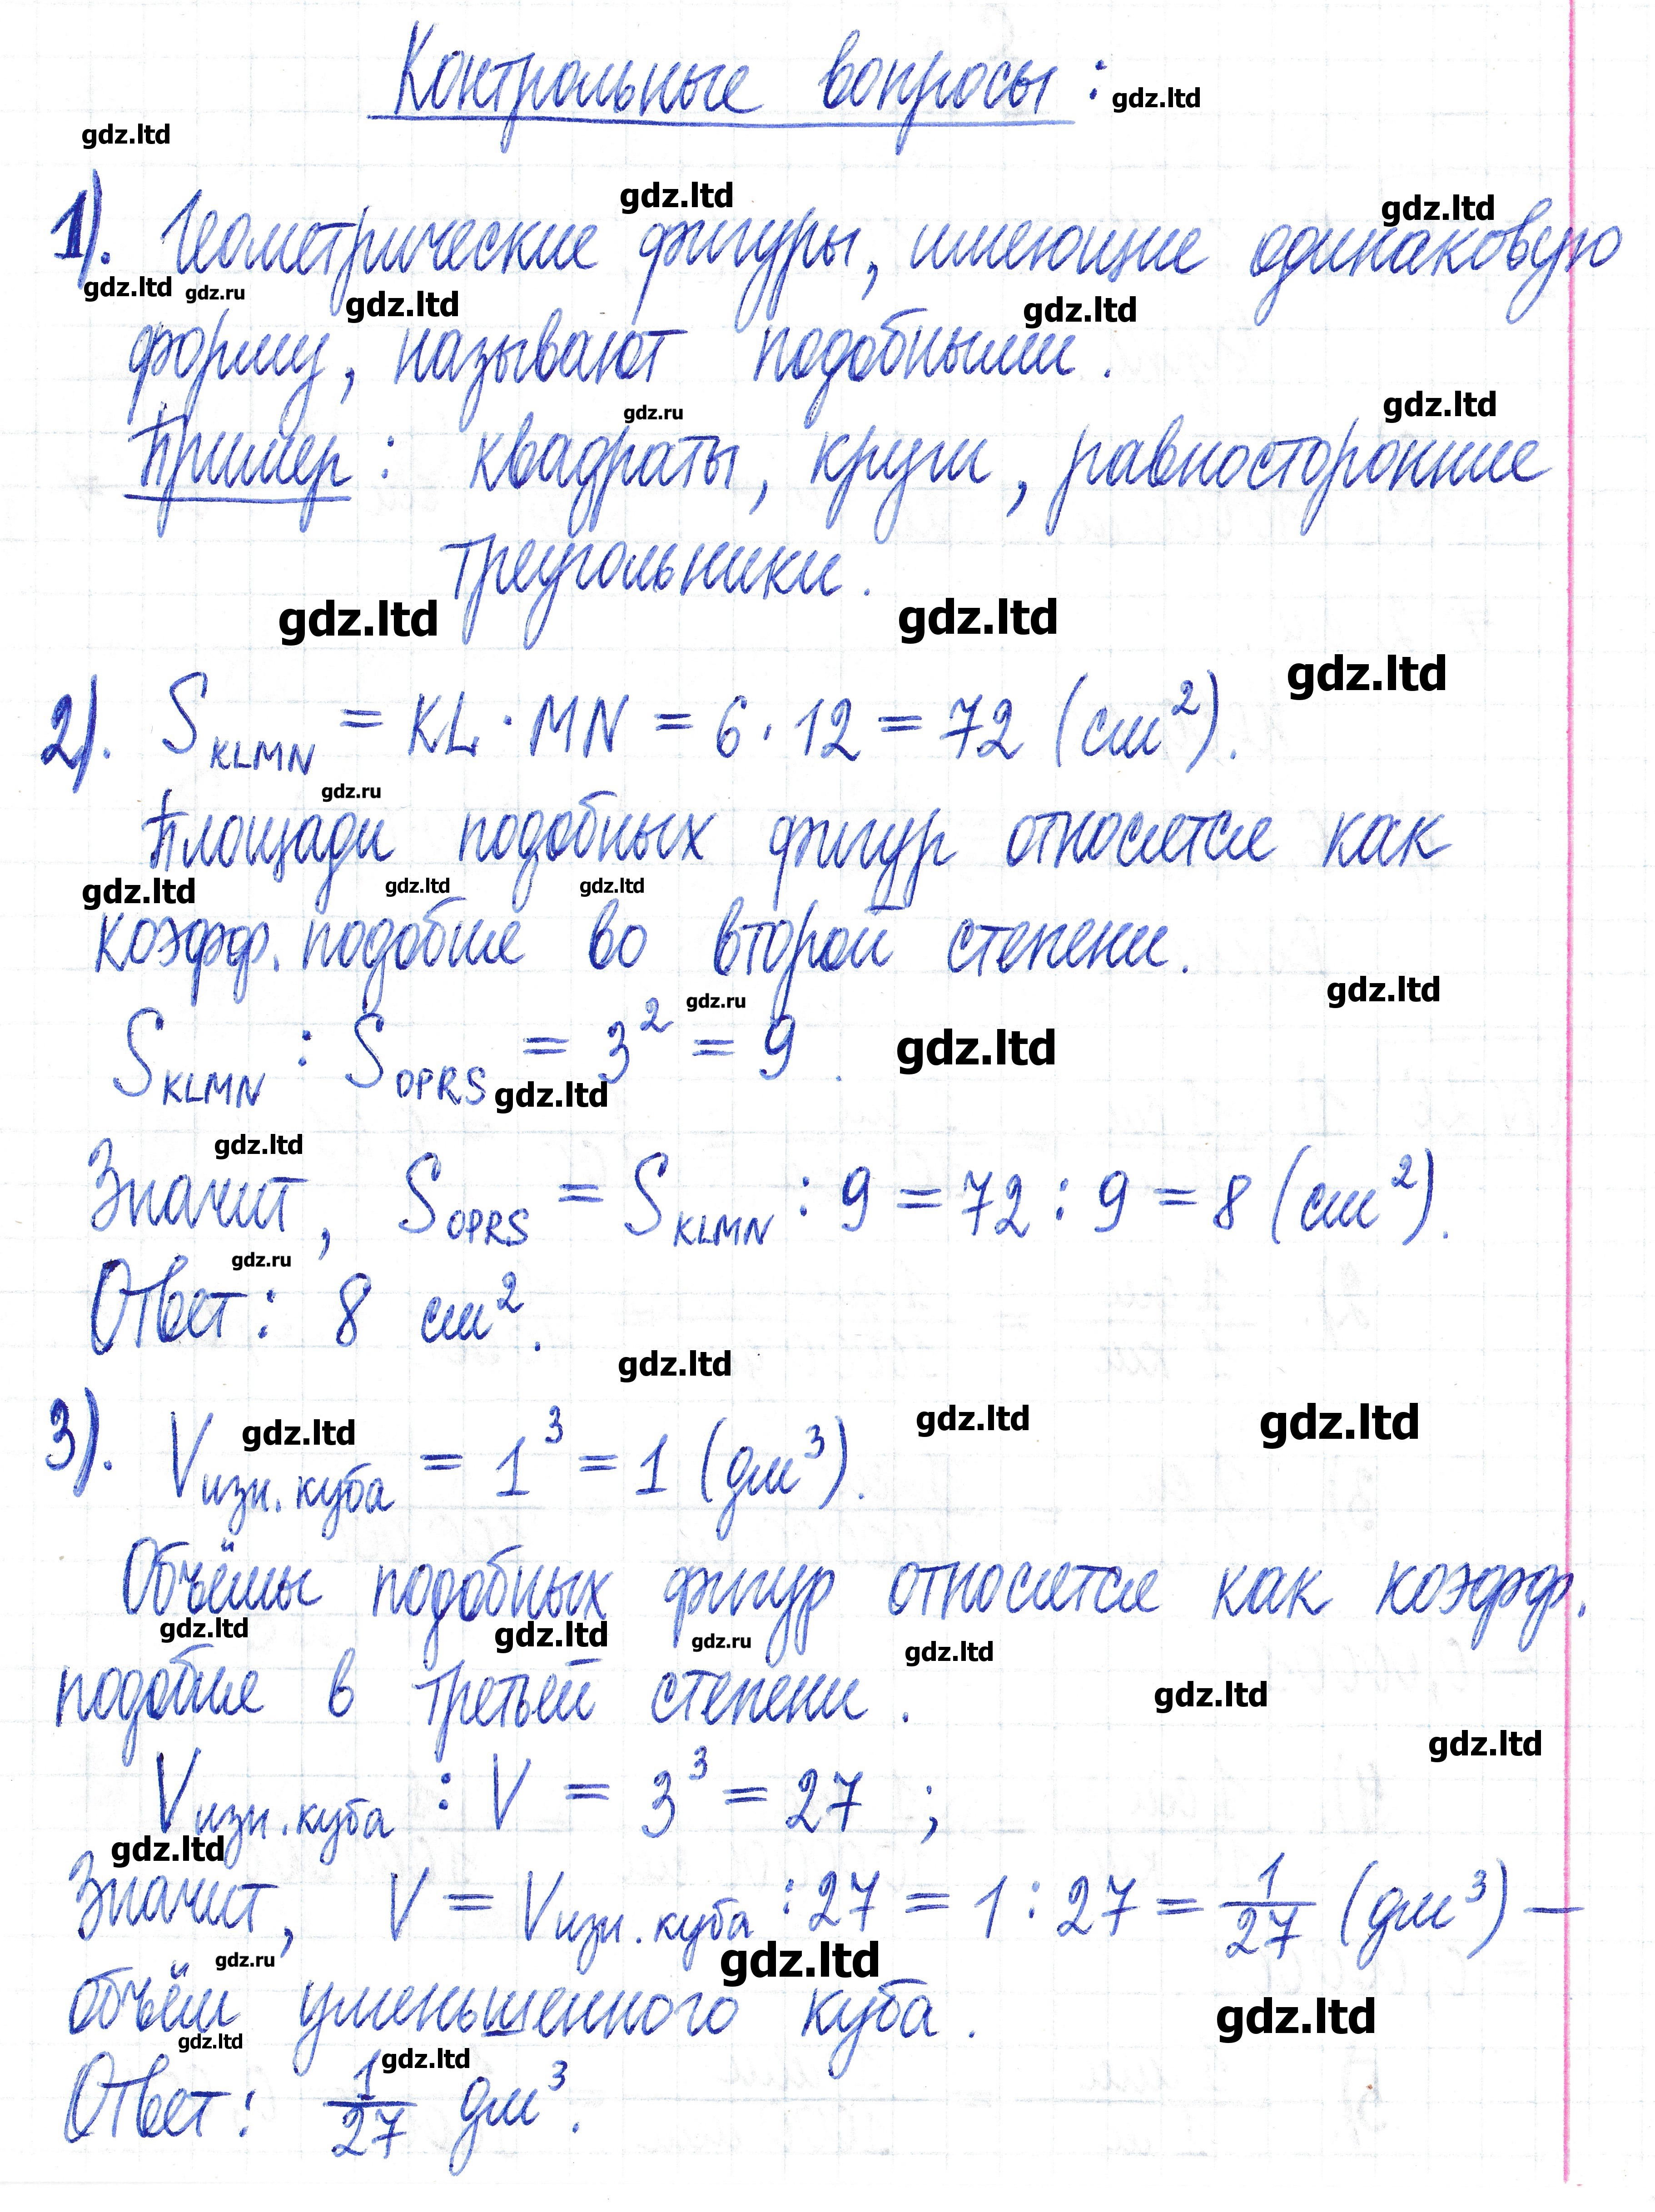 Контрольные вопросы: gdz.ltd
gdz.ltd
gdz.ltd gdz.ltd
1). Геометрические фигуры, имеющие одинаковую
gdz.ltd gdz.ru gdz.ltd gdz.ltd
форму, называют подобными.
gdz.ru gdz.ltd
Пример: квадраты, круги, равносторонние
треугольники.
gdz.ltd gdz.ltd
gdz.ltd
2). S_KLMN = KL · MN = 6 · 12 = 72 (см²).
gdz.ru
Площади подобных фигур относятся как
gdz.ltd gdz.ltd gdz.ltd
коэфф. подобия во второй степени.
gdz.ltd
gdz.ru
S_KLMN : S_OPRS = 3² = 9.
gdz.ltd
gdz.ltd
gdz.ltd
Значит, S_OPRS = S_KLMN : 9 = 72 : 9 = 8 (см²).
gdz.ru
Ответ: 8 см².
gdz.ltd
gdz.ltd gdz.ltd gdz.ltd
3). V изн. куба = 1³ = 1 (дм³).
Объёмы подобных фигур относятся как коэфф.
gdz.ltd gdz.ltd gdz.ru gdz.ltd
подобия в третьей степени.
gdz.ltd
gdz.ltd
V изн. куба : V = 3³ = 27 ;
gdz.ltd
Значит, V = V изн. куба : 27 = 1 : 27 = 1/27 (дм³) –
gdz.ru gdz.ltd
объём уменьшенного куба.
gdz.ltd
gdz.ltd gdz.ltd
Ответ: 1/27 дм³.